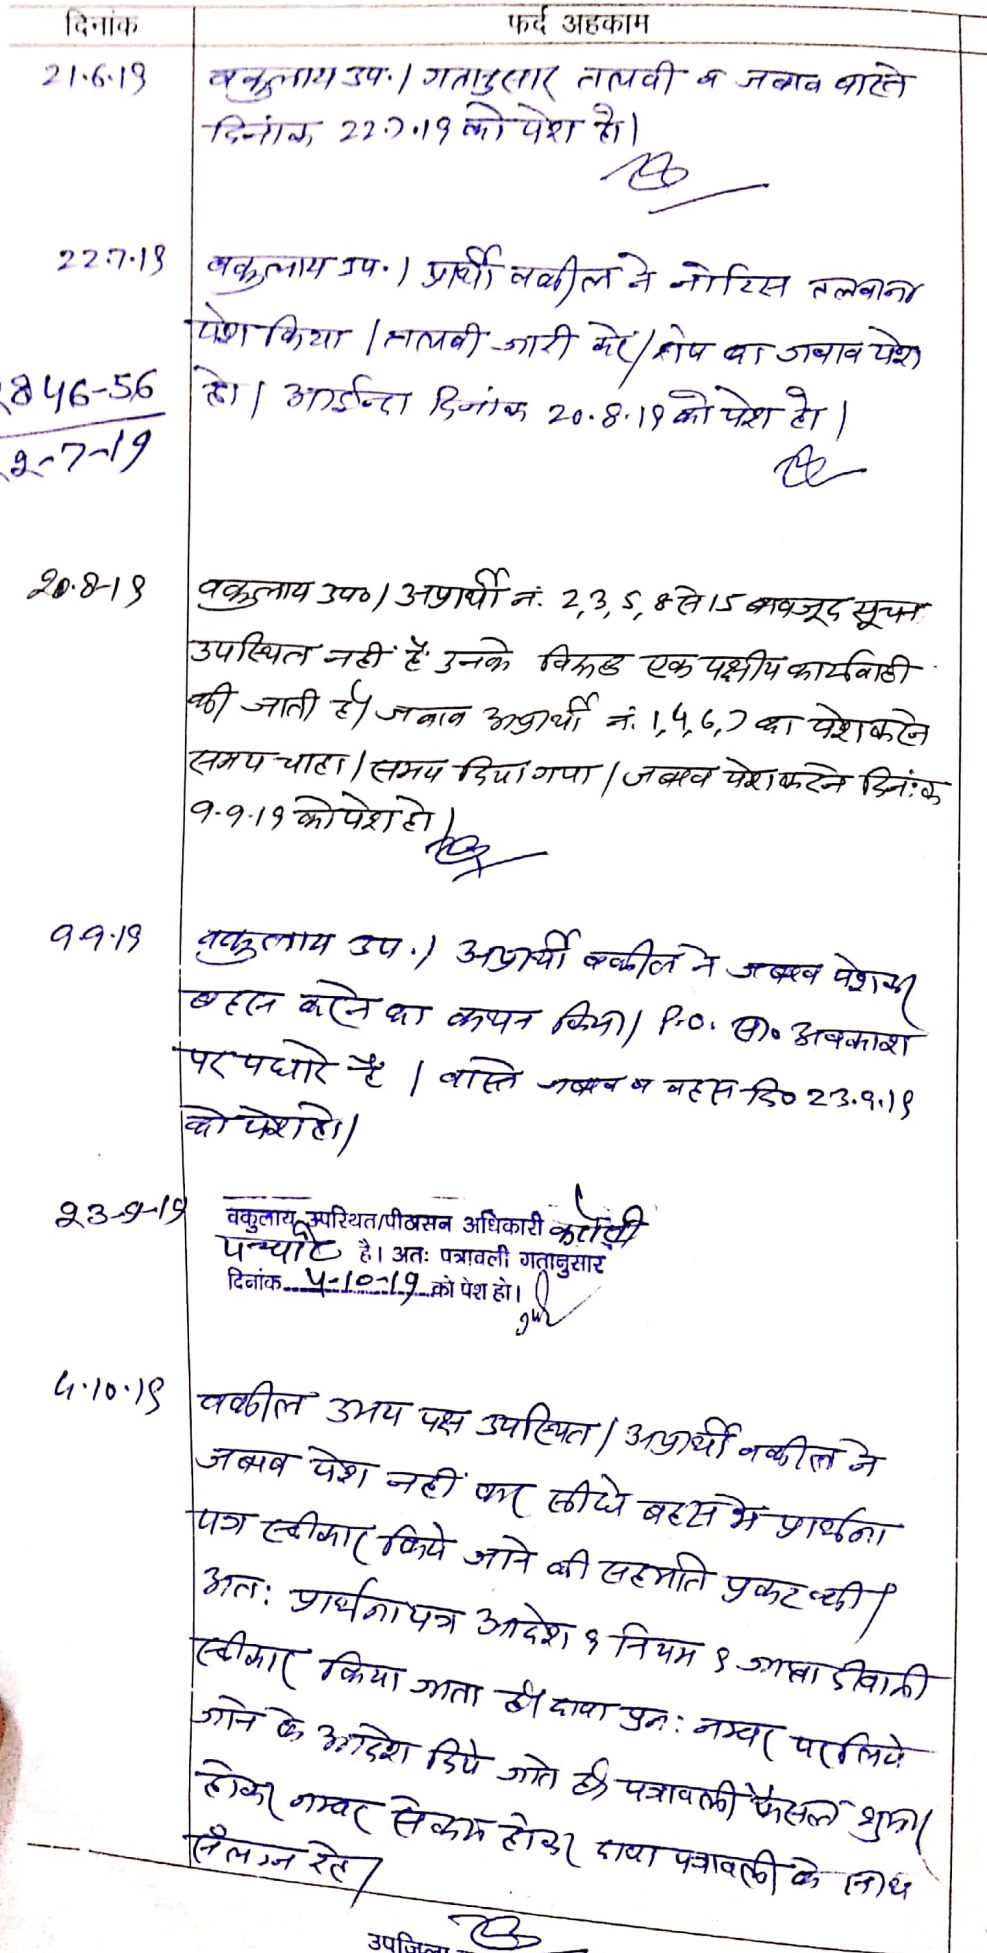 दिनांक
फर्द अहकाम
21.6.19
वकुलाय उप.। गतानुसार तलवी व जबाव वास्ते
दिनांक 22.7.19 को पेश हो।
22.7.19
वकुलाय उप.। प्रार्थी वकील ने नोटिस तलवाना
पेश किया। तलवी जारी हो। शेष का जबाव पेश
हो। आईन्दा दिनांक 20.8.19 को पेश हो।
846-56
2-7-19
20.8-19
वकुलाय उप०। अप्रार्थी नं. 2,3,5,8 से 15 बावजूद सूचना
उपस्थित नहीं हैं उनके विरूद्ध एक पक्षीय कार्यवाही
की जाती है। जबाव अप्रार्थी नं. 1,4,6,7 का पेश करने
समय चाहा। समय दिया गया। जबाव पेश करने दिनांक
9.9.19 को पेश हो।
9.9.19
वकुलाय उप.। अप्रार्थी वकील ने जबाव पेश कर
बहस करने का कथन किया। P.O. सा० अवकाश
पर पधारे है। वास्ते जबाव व बहस दि० 23.9.19
को पेश हो।
23-9-19
वकुलाय उपस्थित/पीठासन अधिकारी
है। अतः पत्रावली गतानुसार
दिनांक 4-10-19 को पेश हो।
4.10.19
वकील उभय पक्ष उपस्थित। अप्रार्थी वकील ने
जबाब पेश नहीं कर सीधे बहस में प्रार्थना
पत्र स्वीकार किये जाने की सहमति प्रकट की।
अतः प्रार्थना पत्र आदेश 9 नियम 9 जाब्ता दीवानी
स्वीकार किया जाता है। दावा पुनः नम्बर पर लिये
जाने के आदेश दिये जाते है। पत्रावली फैसल शुमार
होकर नम्बर से कम होकर दावा पत्रावली के साथ
संलग्न रहे।